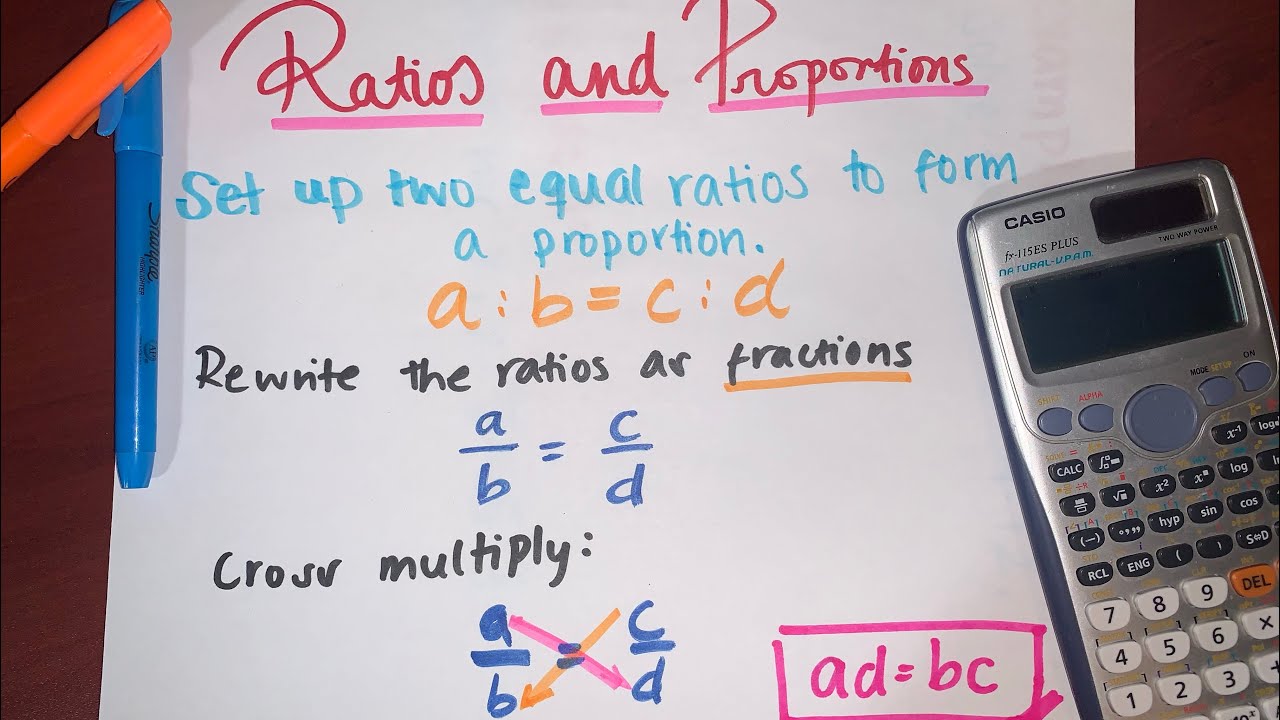 Ratios and Proportions
Set up two equal ratios to form
a proportion.
a : b = c : d
Rewrite the ratios as fractions
a/b = c/d
Cross multiply:
a/b = c/d
ad = bc
Sharpie
CASIO
fx-115ES PLUS
TWO WAY POWER
NATURAL-V.P.A.M.
MODE SETUP ON
SHIFT ALPHA
x⁻¹
CALC ∫ x² log
(−) hyp sin cos
RCL ENG ( ) S⇔D
7 8 9 DEL
4 5 6 ×
1 2 3